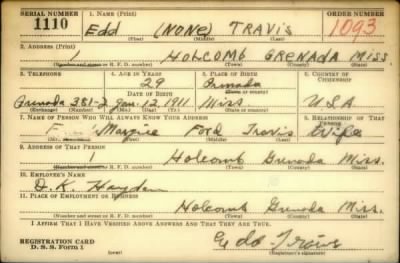 SERIAL NUMBER 1. NAME (Print) ORDER NUMBER
1110 Edd (NONE) TRAVIS 1093
(First) (Middle) (Last)
2. ADDRESS (Print)
1 HOLCOMB GRENADA MISS
(Number and street or R. F. D. number) (Town) (County) (State)
3. TELEPHONE 4. AGE IN YEARS 5. PLACE OF BIRTH 6. COUNTRY OF CITIZENSHIP
29 Grenada
DATE OF BIRTH (Town or county)
Grenada 381-2 Jan. 12, 1911 Miss. USA
(Exchange) (Number) (Mo.) (Day) (Yr.) (State or country)
7. NAME OF PERSON WHO WILL ALWAYS KNOW YOUR ADDRESS 8. RELATIONSHIP OF THAT PERSON
Margie Ford Travis Wife
(Mr., Mrs., Miss) (First) (Middle) (Last)
9. ADDRESS OF THAT PERSON
1 Holcomb Grenada Miss.
(Number and street or R. F. D. number) (Town) (County) (State)
10. EMPLOYER'S NAME
D. K. Hayden
11. PLACE OF EMPLOYMENT OR BUSINESS
Holcomb Grenada Miss.
(Number and street or R. F. D. number) (Town) (County) (State)
I AFFIRM THAT I HAVE VERIFIED ABOVE ANSWERS AND THAT THEY ARE TRUE.
REGISTRATION CARD
D. S. S. Form 1 Edd Travis
(over)